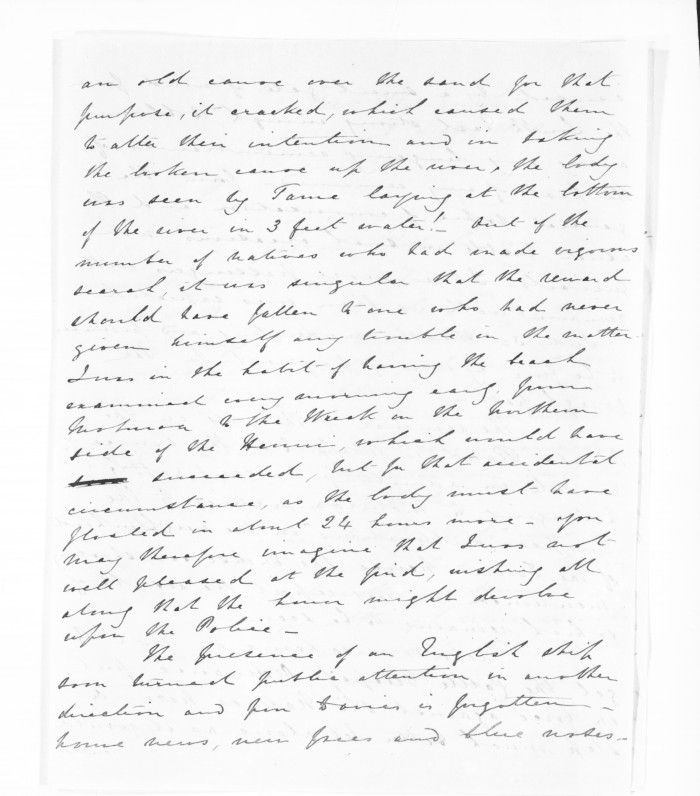 an old canoe over the sand for that
purpose, it cracked, which caused them
to alter their intention and in taking
the broken canoe up the river, the body
was seen by Tame laying at the bottom
of the river in 3 feet water! – Out of the
number of natives who had made vigorous
search, it was singular that the reward
should have fallen to one who had never
given himself any trouble in the matter.
I was in the habit of having the beach
examined every morning early from
to the Wreck on the Northern
side of the, which would have
succeeded, but for that accidental
circumstance, as the body must have
floated in about 24 hours more – You
may therefore imagine that I was not
well pleased at the find, wishing all
along that the honor might devolve
upon the Police –
The presence of an English ship
soon turned public attention in another
direction and poor Davies is forgotten –
home news, new faces and blue notes –